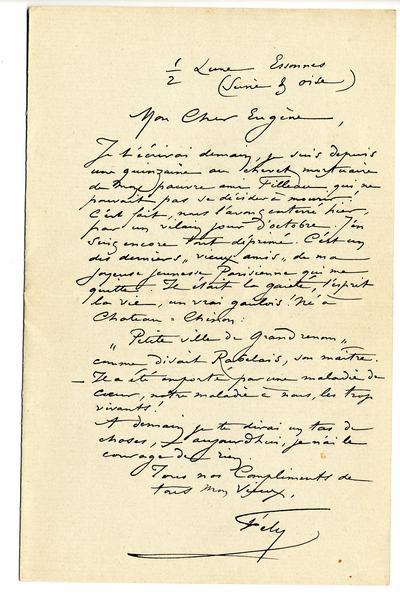 1/2 Lune Essonnes
(Seine & Oise)
Mon Cher Eugène,
Je t'écrirai demain, je suis depuis
une quinzaine au chevet mortuaire
de mon pauvre ami Filleau, qui ne
pouvait pas se décider à mourir!
C'est fait, nous l'avons enterré hier,
par un vilain jour d'octobre. J'en
suis encore tout déprimé. C'est un
des derniers „vieux amis„ de ma
joyeuse jeunesse Parisienne qui me
quitte - Il était la gaieté, l'esprit
la vie, un vrai gaulois! Né à
Chateau = Chinon:
„Petite ville de Grand renom„
comme disait Rabelais, son maître.
— Il a été emporté par une maladie de
cœur, notre maladie à nous, les trop
vivants!
A demain je te dirai un tas de
choses, aujourd'hui, je n'ai le
courage de rien.
Tous nos Compliments de
tous mon Vieux,
Fély